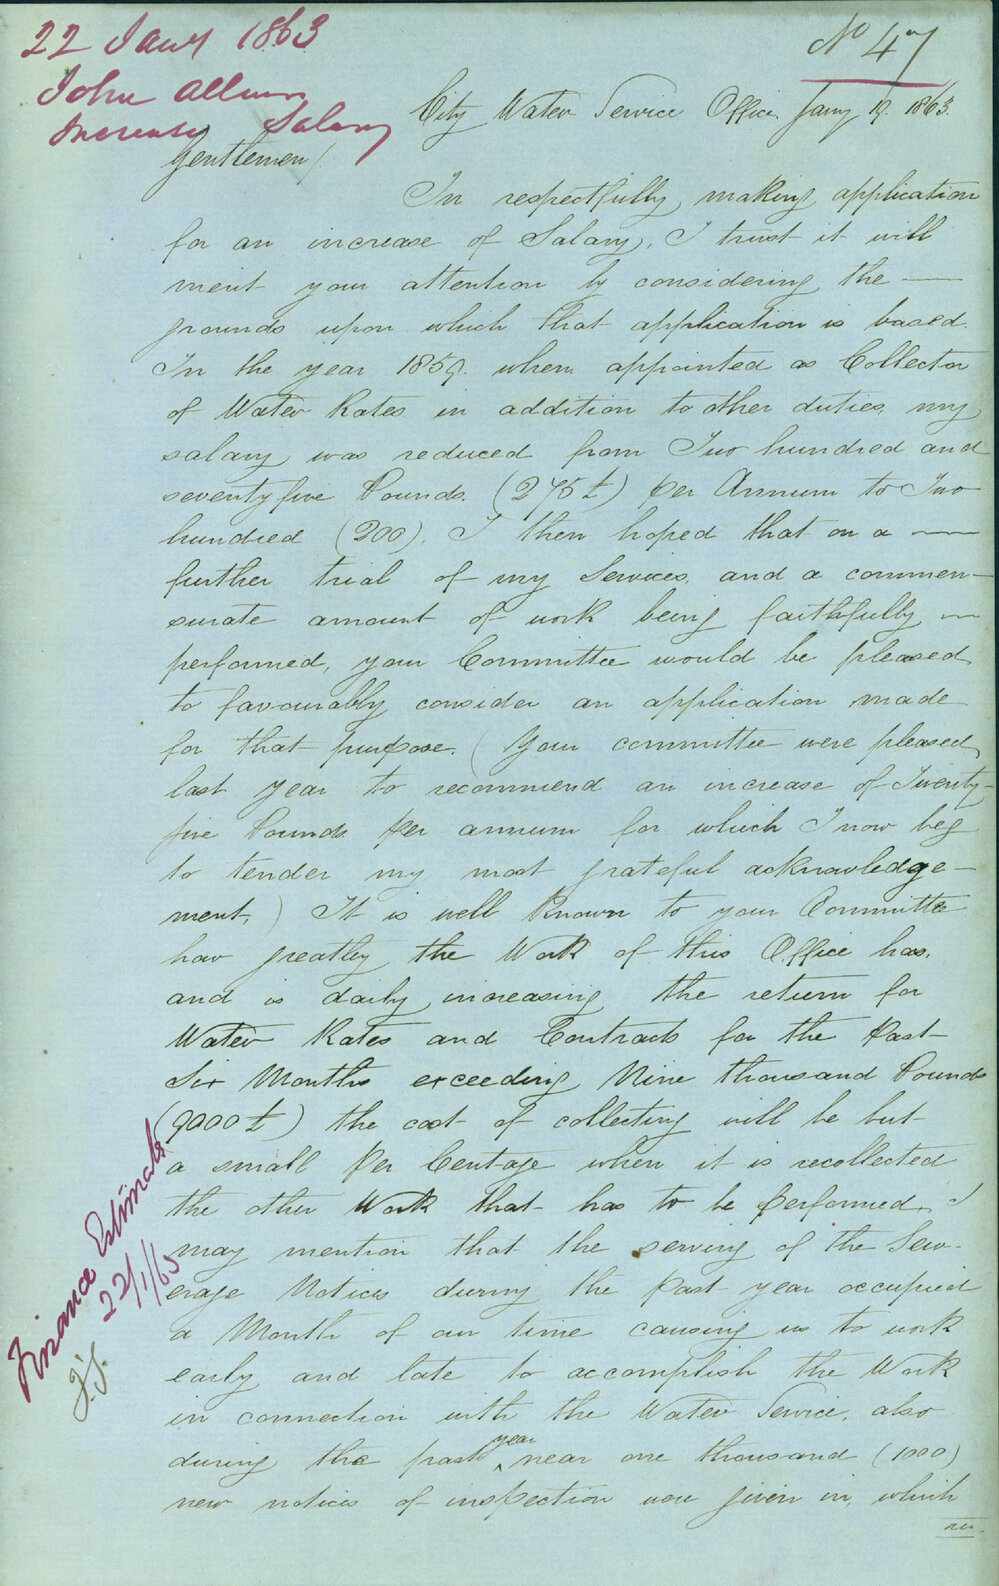 22 Jany 1863
John Allmon
Increase Salary
No 47
City Water Service Office. Jany 19. 1863.
Gentlemen/
In respectfully making application
for an increase of Salary, I trust it will
merit your attention by considering the —
grounds upon which that application is based.
In the year 1859. when appointed as Collector
of Water Rates in addition to other duties, my
salary was reduced from Two hundred and
seventy five Pounds. (275 £) per Annum to Two
hundred (200). I then hoped that on a —
further trial of my Services, and a commen-
surate amount of work being faithfully —
performed, your Committee would be pleased
to favourably consider an application made
for that purpose. (Your committee were pleased
last year to recommend an increase of Twenty-
five Pounds per annum for which I now beg
to tender my most grateful acknowledge-
ment.) It is well known to your Committee
how greatly the Work of this Office has,
and is daily increasing the return for
Water Rates and Contracts for the Past
Six Months exceeding Nine thousand Pounds
(9000 £) the cost of collecting will be but
a small Per Centage when it is recollected
the other Work that has to be performed. I
may mention that the serving of the Sew-
erage Notices during the Past year occupied
a Month of our time causing us to work
early and late to accomplish the Work
in connection with the Water Service, also
during the past year near one thousand (1000)
new notices of inspection were given in, which
Finance Estimate
22/1/63
J.S.